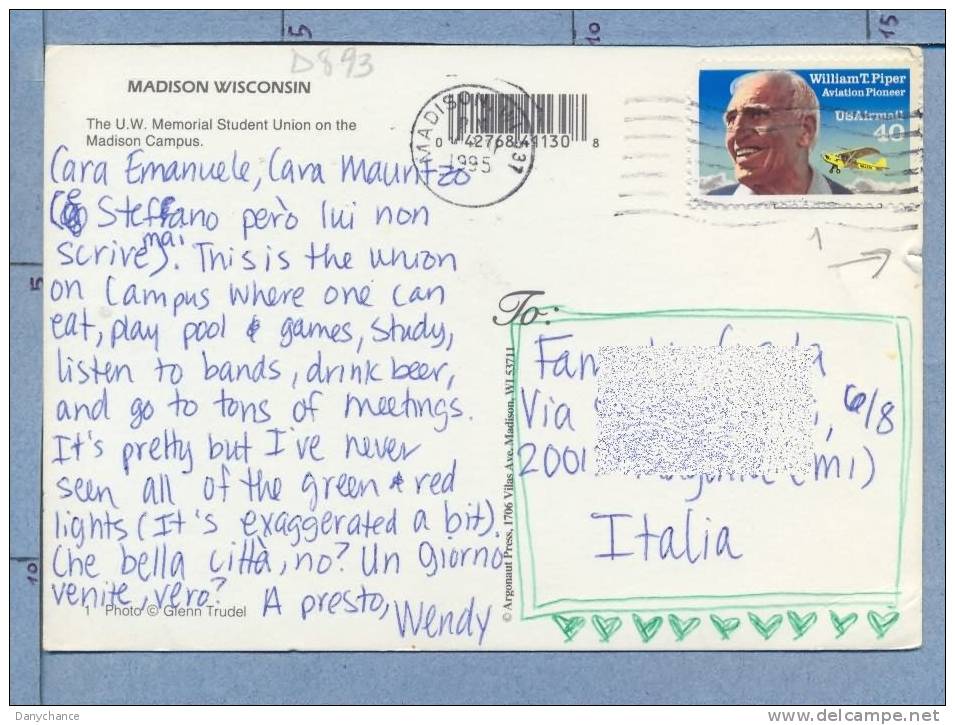 5
10
15
D893
MADISON WISCONSIN
The U.W. Memorial Student Union on the
Madison Campus.
0 42768 41130 8
MADISON
1995
537
William T. Piper
Aviation Pioneer
USAirmail
40
Cara Emanuele, Cara Mauritzo
(e Steffano però lui non
scrive mai). This is the union
on campus where one can
eat, play pool & games, study,
listen to bands, drink beer,
and go to tons of meetings.
It's pretty but I've never
seen all of the green & red
lights (It's exaggerated a bit).
Che bella città, no? Un giorno
venite, vero?
A presto,
Wendy
1 Photo © Glenn Trudel
© Argonaut Press, 1706 Vilas Ave. Madison, WI 53711
1
To:
Fam
Via , 6/8
2001 (MI)
Italia
5
10
Danychance
www.delcampe.net